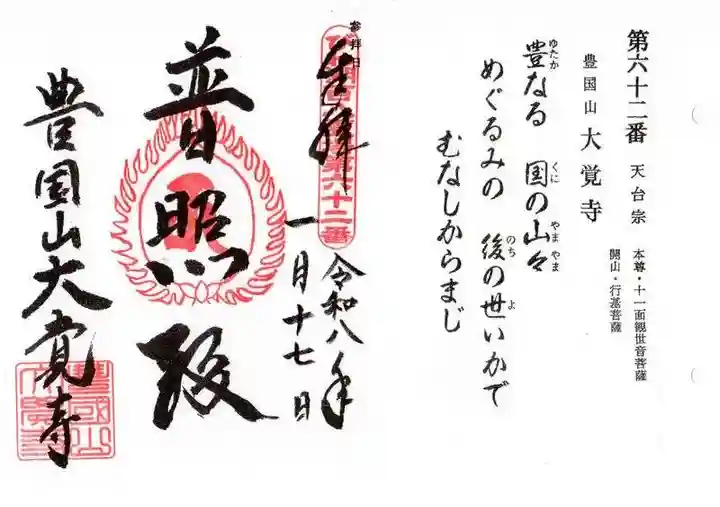 第六十二番 天台宗
本尊・十一面観世音菩薩
開山・行基菩薩
豊国山 大覚寺
豊なる 国の山々
ゆたか くに やま やま
めぐるみの 後の世いかで
のち よ
むなしからまじ
参拝日
奉拝
第六十二番
令和八年
一月十七日
普照殿
豊国山大覚寺